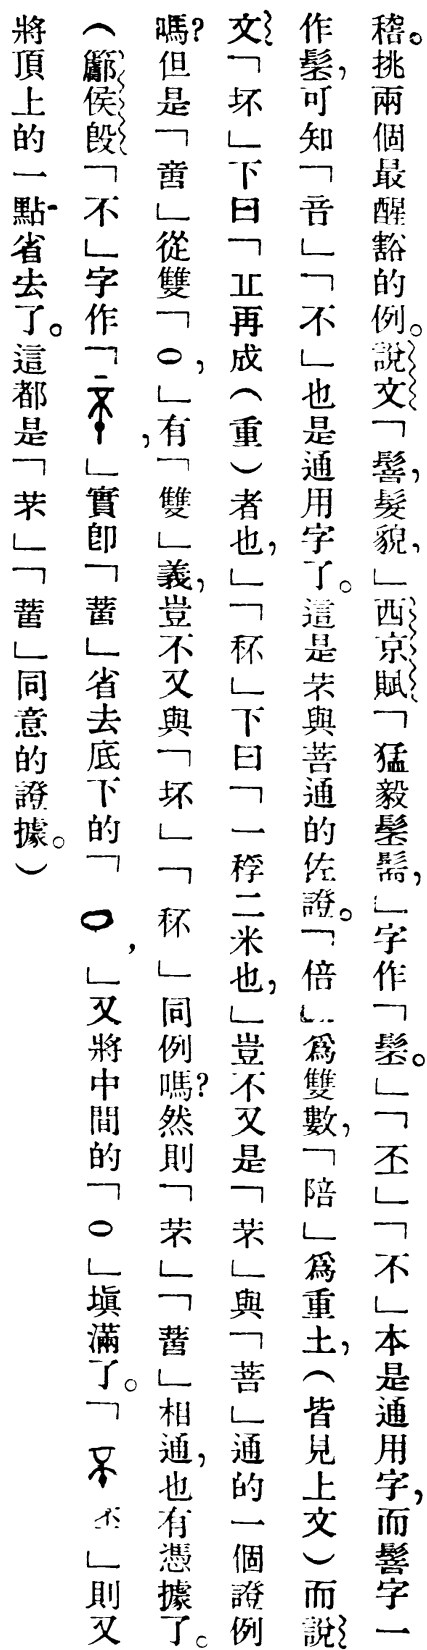 稽。挑兩個最醒豁的例。說文「髻,髮貌,」西京賦「猛毅髬髵,」字作「髬。」「丕」「不」本是通用字,而髻字一
作髬,可知「咅」「不」也是通用字了。這是芣與菩通的佐證。「倍」爲雙數,「陪」爲重土,(皆見上文)而說
文「坏」下曰「丘再成(重)者也,」「秠」下曰「一稃二米也,」豈不又是「芣」與「菩」通的一個證例
嗎?但是「啚」從雙「○,」有「雙」義,豈不又與「坏」「秠」同例嗎?然則「芣」「蕾」相通,也有憑據了。
(鄘侯𣪘「不」字作「」實卽「蕾」省去底下的「○,」又將中間的「○」塡滿了。「丕」則又
將頂上的一點省去了。這都是「芣」「蕾」同意的證據。)